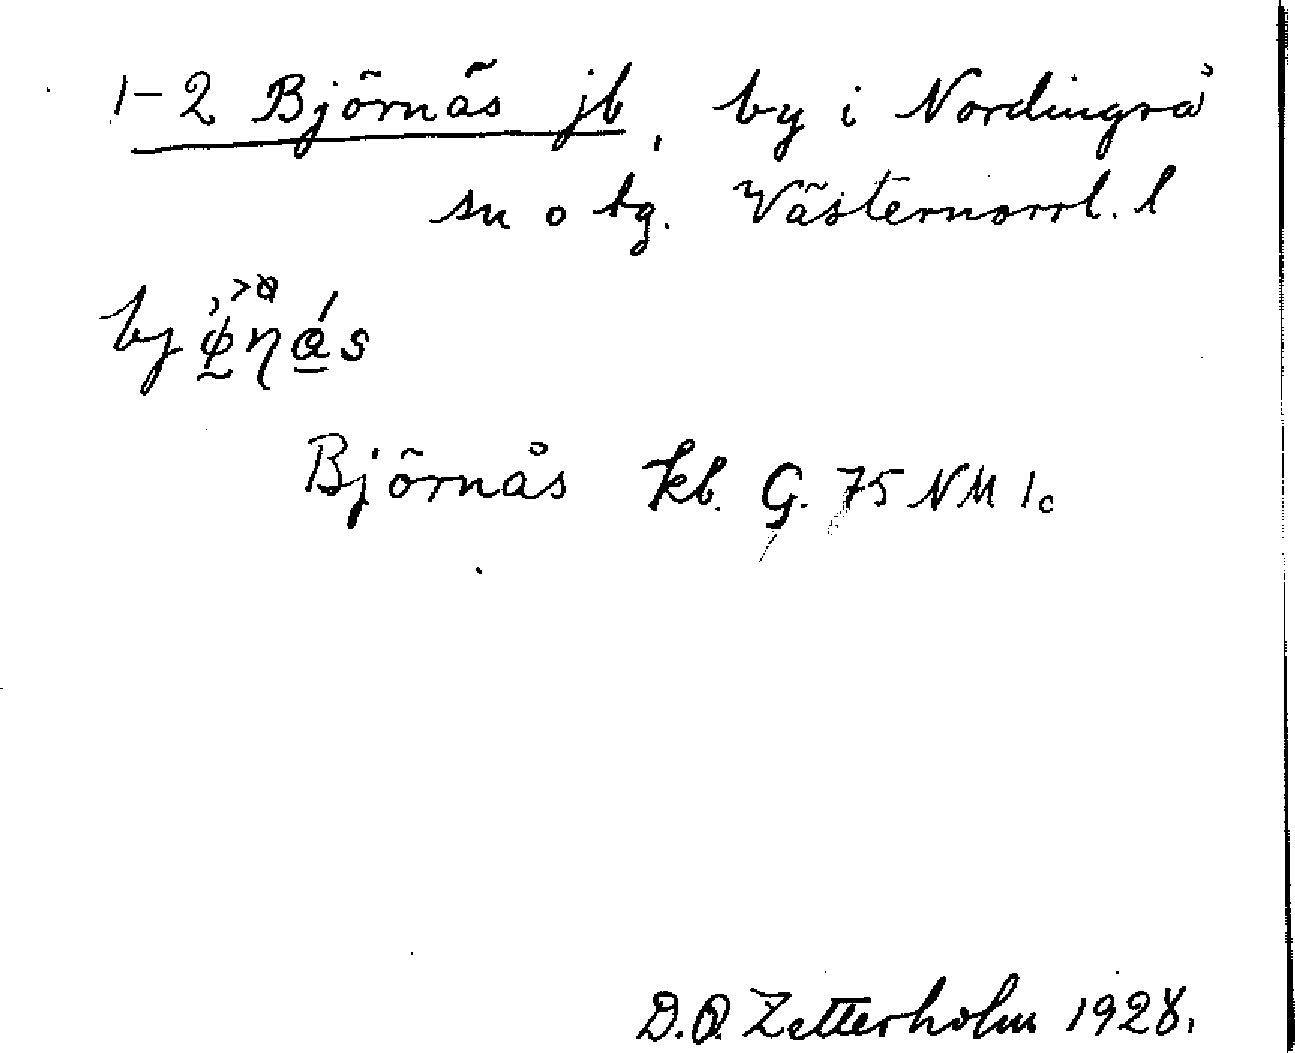 1-2 Björnäs jb, by i Nordingrå
sn o tg. Västernorrl. l
Björnås kb. G. 75 NM 1c
D.O. Zetterholm 1928.